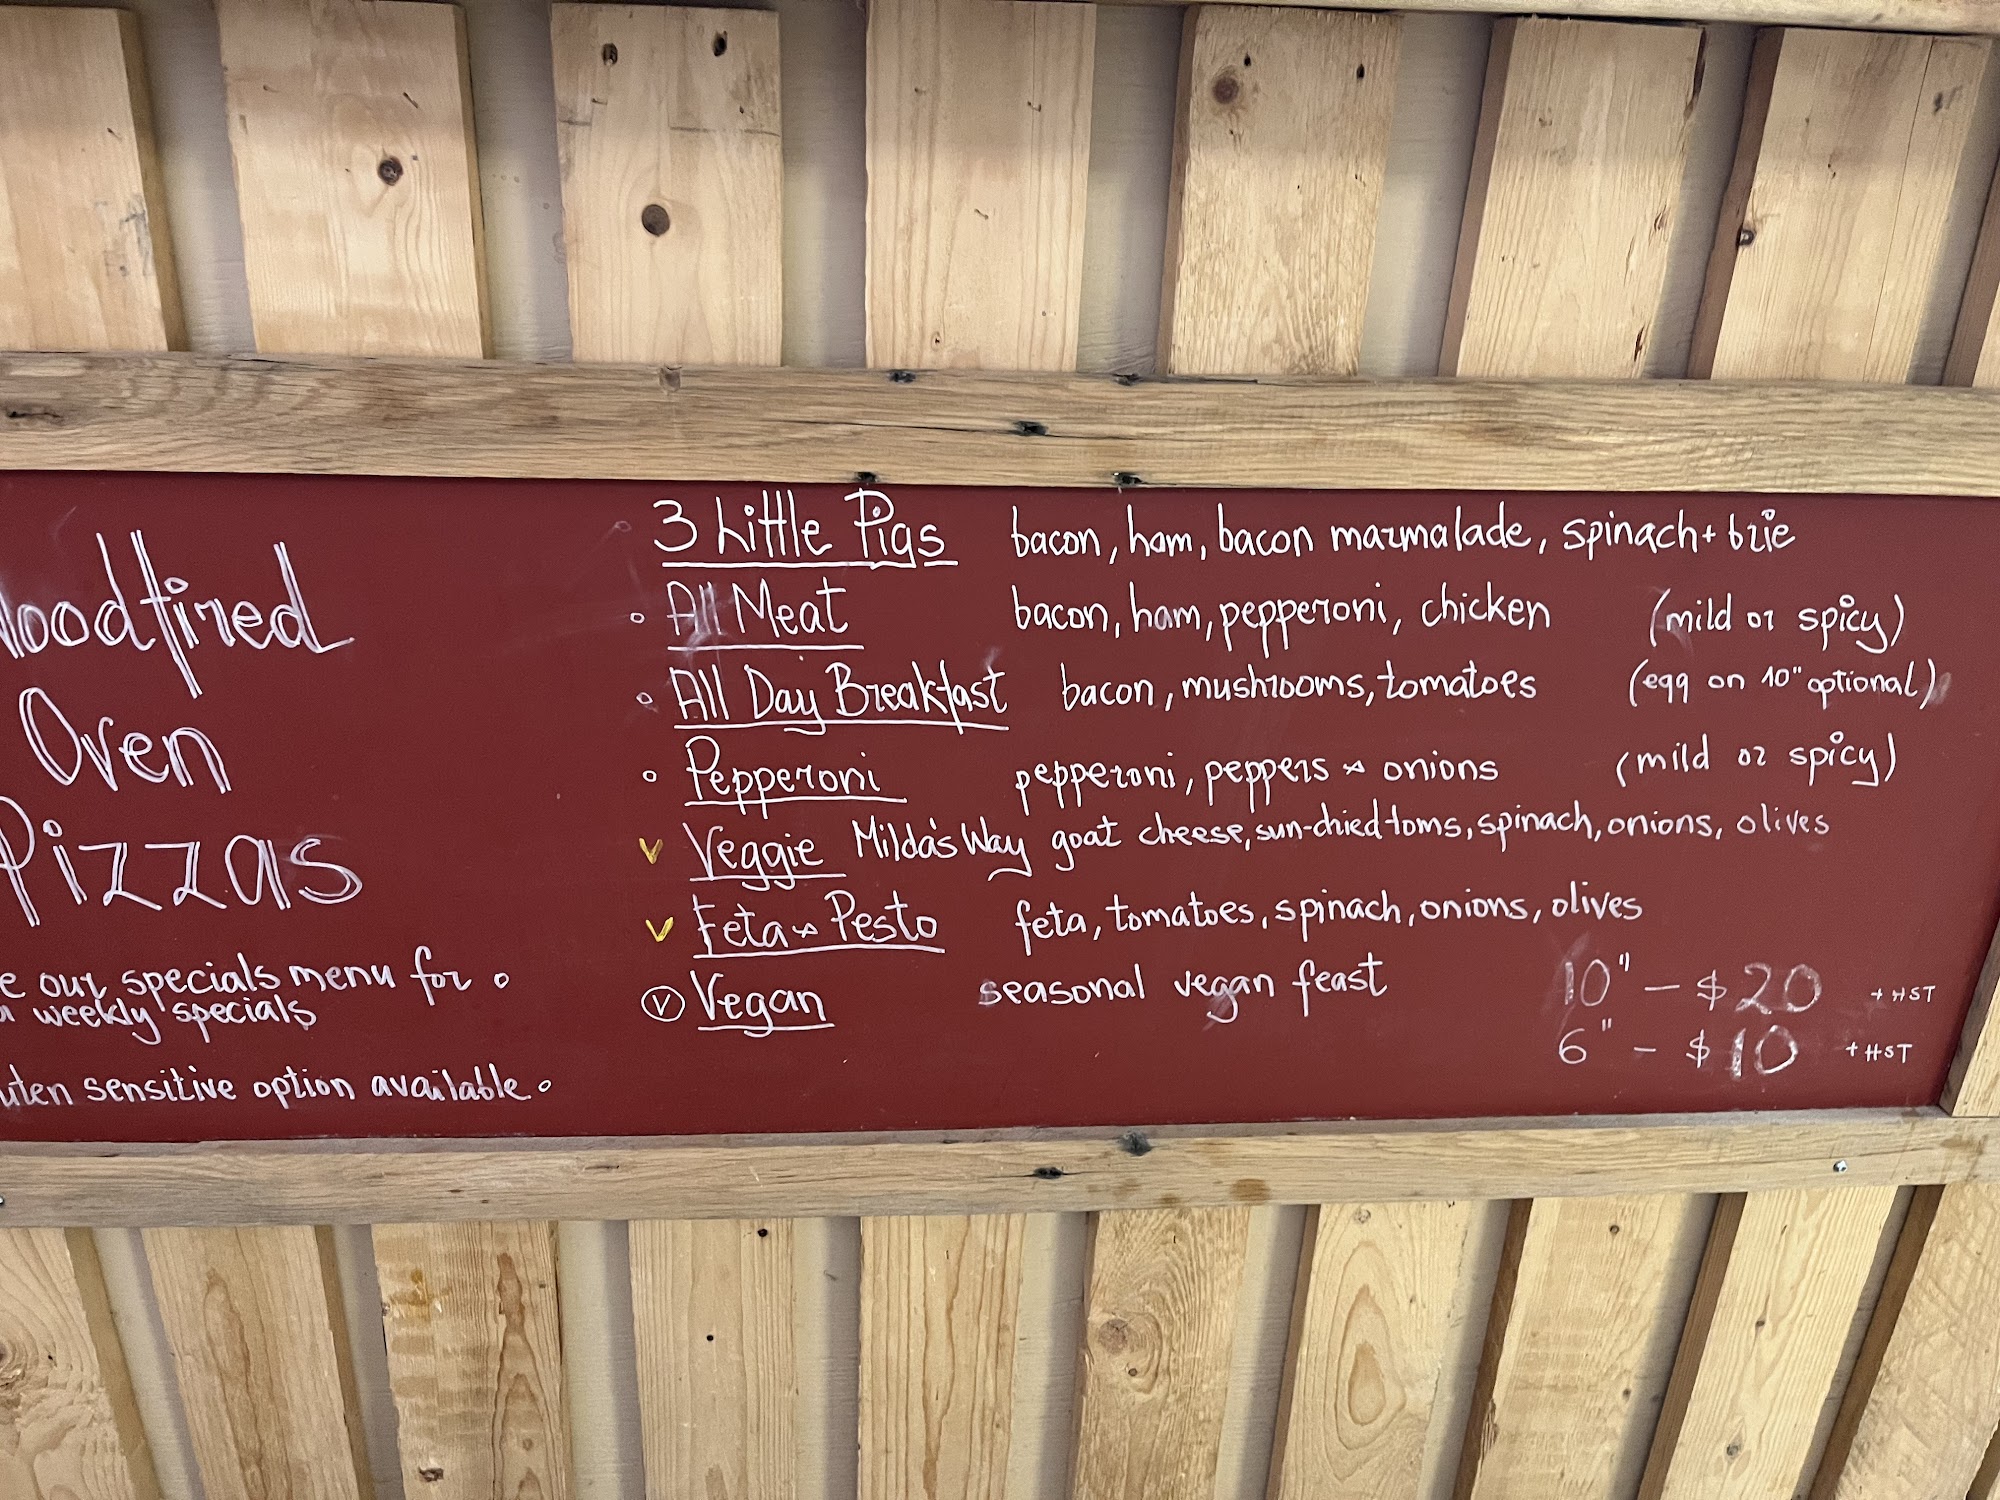 oodfired
Oven
Pizzas
e our specials menu for
weekly specials
uten sensitive option available.
3 Little Pigs bacon, ham, bacon marmalade, spinach + brie
All Meat bacon, ham, pepperoni, chicken (mild or spicy)
All Day Breakfast bacon, mushrooms, tomatoes (egg on 10" optional)
Pepperoni pepperoni, peppers + onions (mild or spicy)
V Veggie Milda's Way goat cheese, sun-dried toms, spinach, onions, olives
V Feta + Pesto feta, tomatoes, spinach, onions, olives
V Vegan seasonal vegan feast
10" - $20 + HST
6" - $10 + HST